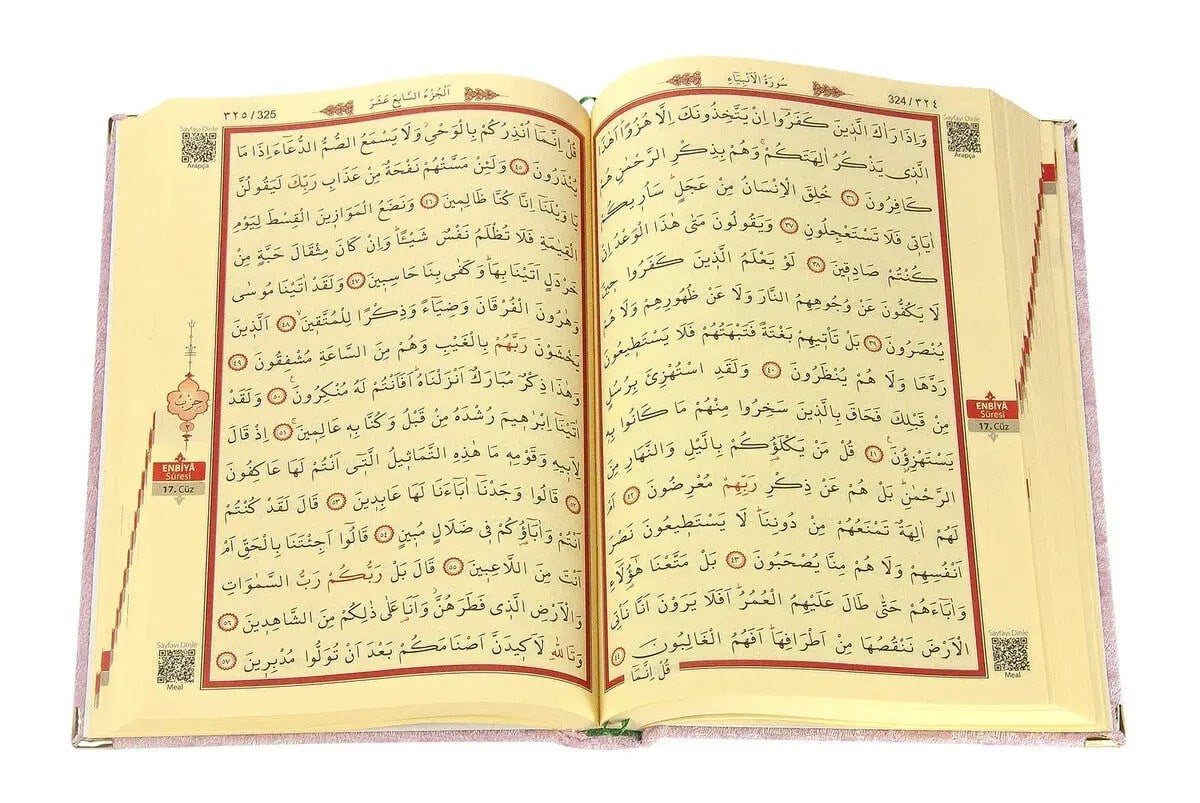 سُورَةُ الْاَنْبِيَٓاءِ
324/٣٢٤
Sayfayı Dinle
Arapça
وَاِذَا رَاٰكَ الَّذ۪ينَ كَفَرُٓوا اِنْ يَتَّخِذُونَكَ اِلَّا هُزُوًاۜ اَهٰذَا
الَّذ۪ي يَذْكُرُ اٰلِهَتَكُمْۚ وَهُمْ بِذِكْرِ الرَّحْمٰنِ هُمْ
كَافِرُونَ ﴿٣٦﴾ خُلِقَ الْاِنْسَانُ مِنْ عَجَلٍۜ سَاُر۪يكُمْ
اٰيَات۪ي فَلَا تَسْتَعْجِلُونِ ﴿٣٧﴾ وَيَقُولُونَ مَتٰى هٰذَا الْوَعْدُ اِنْ
كُنْتُمْ صَادِق۪ينَ ﴿٣٨﴾ لَوْ يَعْلَمُ الَّذ۪ينَ كَفَرُوا ح۪ينَ
لَا يَكُفُّونَ عَنْ وُجُوهِهِمُ النَّارَ وَلَا عَنْ ظُهُورِهِمْ وَلَا هُمْ
يُنْصَرُونَ ﴿٣٩﴾ بَلْ تَأْت۪يهِمْ بَغْتَةً فَتَبْهَتُهُمْ فَلَا يَسْتَط۪يعُونَ
رَدَّهَا وَلَا هُمْ يُنْظَرُونَ ﴿٤٠﴾ وَلَقَدِ اسْتُهْزِئَ بِرُسُلٍ
مِنْ قَبْلِكَ فَحَاقَ بِالَّذ۪ينَ سَخِرُوا مِنْهُمْ مَا كَانُوا بِه۪
يَسْتَهْزِؤُ۫نَ۟ ﴿٤١﴾ قُلْ مَنْ يَكْلَؤُ۬كُمْ بِالَّيْلِ وَالنَّهَارِ مِنَ
الرَّحْمٰنِۜ بَلْ هُمْ عَنْ ذِكْرِ رَبِّهِمْ مُعْرِضُونَ ﴿٤٢﴾ اَمْ
لَهُمْ اٰلِهَةٌ تَمْنَعُهُمْ مِنْ دُونِنَاۜ لَا يَسْتَط۪يعُونَ نَصْرَ
اَنْفُسِهِمْ وَلَا هُمْ مِنَّا يُصْحَبُونَ ﴿٤٣﴾ بَلْ مَتَّعْنَا هٰٓؤُ۬لَٓاءِ
وَاٰبَٓاءَهُمْ حَتّٰى طَالَ عَلَيْهِمُ الْعُمُرُۜ اَفَلَا يَرَوْنَ اَنَّا نَأْتِي
الْاَرْضَ نَنْقُصُهَا مِنْ اَطْرَافِهَاۜ اَفَهُمُ الْغَالِبُونَ ﴿٤٤﴾
قُلْ اِنَّمَٓا
ENBİYÂ
Sûresi
17. Cüz
Sayfayı Dinle
Meal
اَلْجُزْءُ السَّابِعَ عَشَرَ
٣٢٥/325
Sayfayı Dinle
Arapça
قُلْ اِنَّمَٓا اُنْذِرُكُمْ بِالْوَحْيِۘ وَلَا يَسْمَعُ الصُّمُّ الدُّعَٓاءَ اِذَا مَا
يُنْذَرُونَ ﴿٤٥﴾ وَلَئِنْ مَسَّتْهُمْ نَفْحَةٌ مِنْ عَذَابِ رَبِّكَ لَيَقُولُنَّ
يَا وَيْلَنَٓا اِنَّا كُنَّا ظَالِم۪ينَ ﴿٤٦﴾ وَنَضَعُ الْمَوَاز۪ينَ الْقِسْطَ لِيَوْمِ
الْقِيٰمَةِ فَلَا تُظْلَمُ نَفْسٌ شَيْـًٔاۜ وَاِنْ كَانَ مِثْقَالَ حَبَّةٍ مِنْ
خَرْدَلٍ اَتَيْنَا بِهَاۜ وَكَفٰى بِنَا حَاسِب۪ينَ ﴿٤٧﴾ وَلَقَدْ اٰتَيْنَا مُوسٰى
وَهٰرُونَ الْفُرْقَانَ وَضِيَٓاءً وَذِكْرًا لِلْمُتَّق۪ينَۙ ﴿٤٨﴾ اَلَّذ۪ينَ
يَخْشَوْنَ رَبَّهُمْ بِالْغَيْبِ وَهُمْ مِنَ السَّاعَةِ مُشْفِقُونَ ﴿٤٩﴾
وَهٰذَا ذِكْرٌ مُبَارَكٌ اَنْزَلْنَاهُۜ اَفَاَنْتُمْ لَهُ مُنْكِرُونَ۟ ﴿٥٠﴾ وَلَقَدْ
اٰتَيْنَٓا اِبْرٰه۪يمَ رُشْدَهُ مِنْ قَبْلُ وَكُنَّا بِه۪ عَالِم۪ينَۚ ﴿٥١﴾ اِذْ قَالَ
لِاَب۪يهِ وَقَوْمِه۪ مَا هٰذِهِ التَّمَاث۪يلُ الَّت۪ٓي اَنْتُمْ لَهَا عَاكِفُونَ
﴿٥٢﴾ قَالُوا وَجَدْنَٓا اٰبَٓاءَنَا لَهَا عَابِد۪ينَ ﴿٥٣﴾ قَالَ لَقَدْ كُنْتُمْ
اَنْتُمْ وَاٰبَٓاؤُ۬كُمْ ف۪ي ضَلَالٍ مُب۪ينٍ ﴿٥٤﴾ قَالُٓوا اَجِئْتَنَا بِالْحَقِّ اَمْ
اَنْتَ مِنَ اللَّاعِب۪ينَ ﴿٥٥﴾ قَالَ بَلْ رَبُّكُمْ رَبُّ السَّمٰوَاتِ
وَالْاَرْضِ الَّذ۪ي فَطَرَهُنَّۘ وَاَنَا۬ عَلٰى ذٰلِكُمْ مِنَ الشَّاهِد۪ينَ ﴿٥٦﴾
وَتَاللّٰهِ لَاَك۪يدَنَّ اَصْنَامَكُمْ بَعْدَ اَنْ تُوَلُّوا مُدْبِر۪ينَ ﴿٥٧﴾
حزب
ENBİYÂ
Sûresi
17. Cüz
Sayfayı Dinle
Meal